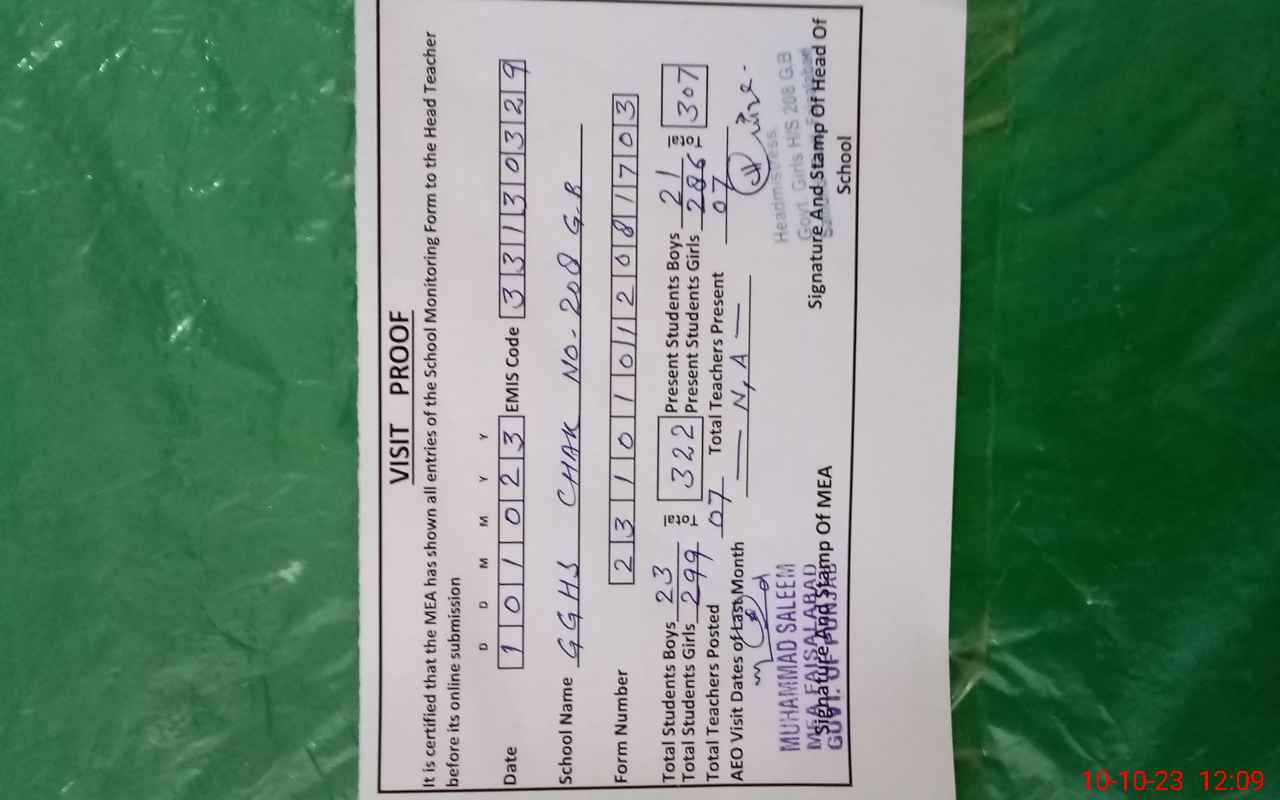 VISIT PROOF
It is certified that the MEA has shown all entries of the School Monitoring Form to the Head Teacher
before its online submission
D D M M Y Y
Date 10/1023 EMIS Code 33130329
School Name GGHS CHAK NO-208 G.B
Form Number 2310101208/1703
Total Students Boys 23 Total 322 Present Students Boys 21 Total 307
Total Students Girls 299 Present Students Girls 286
Total Teachers Posted 07 Total Teachers Present 07
AEO Visit Dates of Last Month — N,A —
MUHAMMAD SALEEM
MEA FAISALABAD
GOVT. OF PUNJAB
Signature And Stamp Of MEA
Headmistress
Govt. Girls H/S 208 G.B
Faisalabad
Signature And Stamp Of Head Of
School
10-10-23 12:09